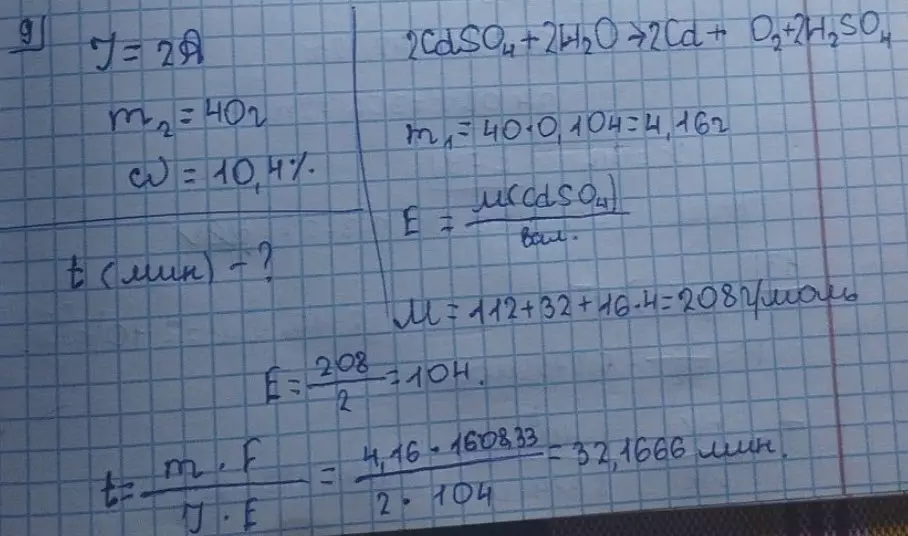 9)
J = 2A
m₂ = 40г
ω = 10,4%.
t (мин) - ?
2CdSO₄ + 2H₂O → 2Cd + O₂ + 2H₂SO₄
m₁ = 40·0,104 = 4,16г
E = M(CdSO₄) / вал.
M = 112 + 32 + 16·4 = 208 г/моль
E = 208 / 2 = 104.
t = m · F / J · E = 4,16 · 1608,33 / 2 · 104 = 32,1666 мин.